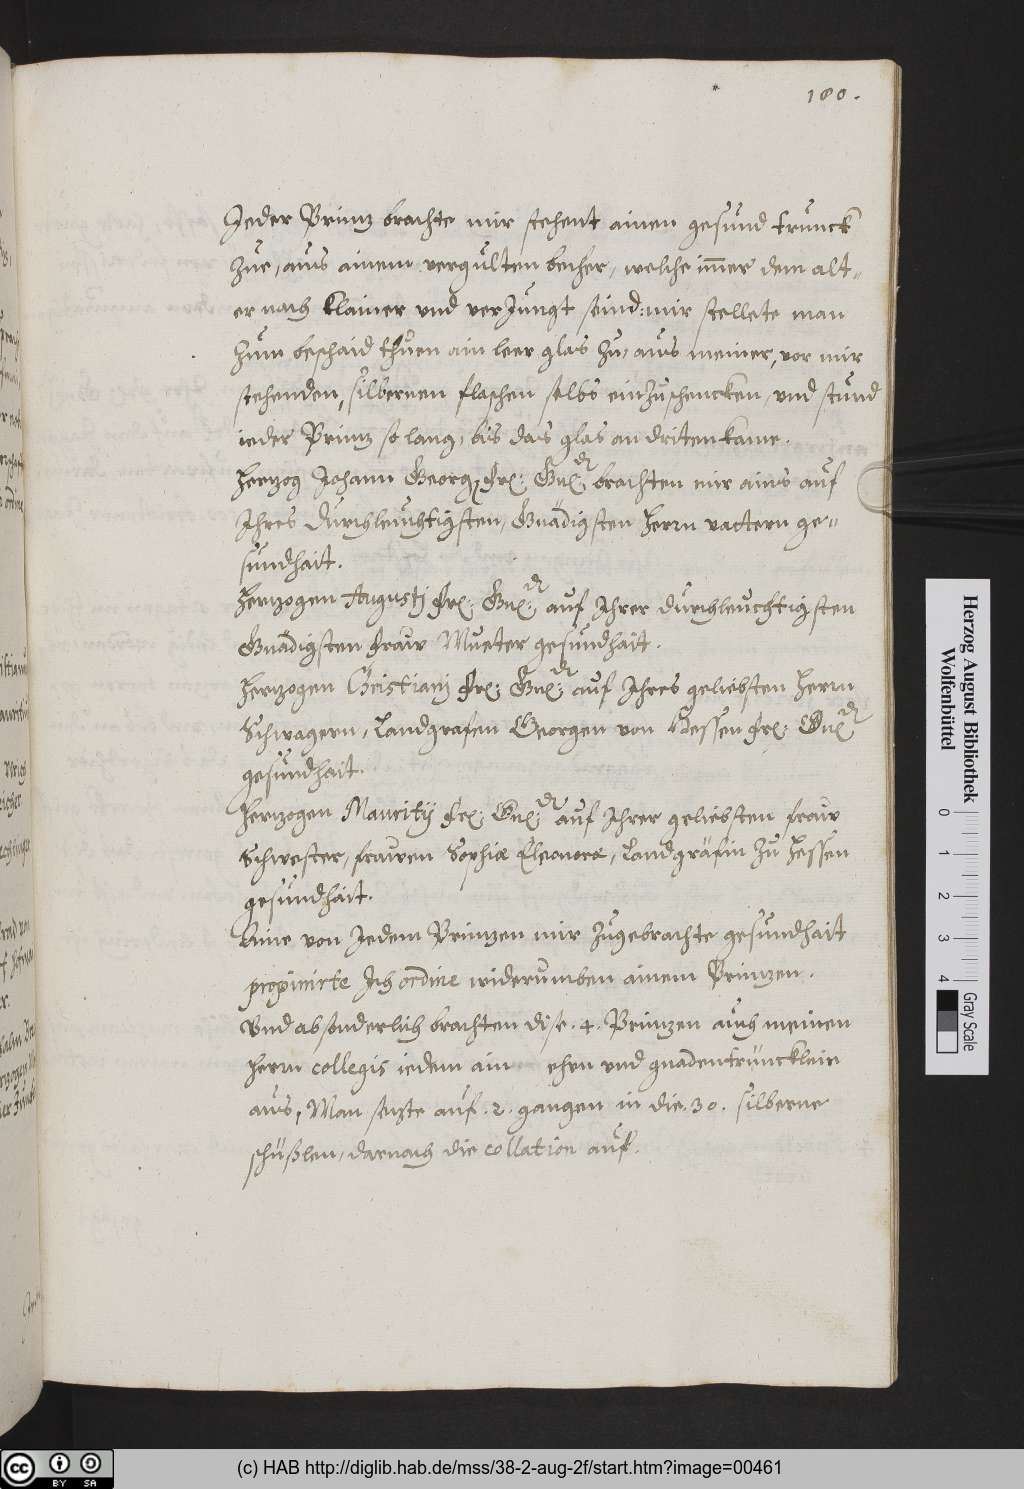 180.
Jeder Prinz brachte mir stehent ainen gesund trunck
zue, aus ainem vergulten becher, welche im̄er dem alt-
er nach klainer vnd verJungt seind: mir stellete man
zum beschaid thuen ain leer glas zu, aus meiner, vor mir
stehenden, silbernen flaschen selbs einzuschencken, vnd stund
ieder Prinz so lang, bis das glas an driten kame.
Hertzog Johann Georg, Frl: Gnl: dt brachten mir ains auf
Ihres Durchleuchtigsten, Gnädigsten Herrn vattern ge-
sundhait.
Hertzogen Augustj Frl: Gnl: dt auf Ihrer durchleuchtigsten
Gnädigsten Fraw Mueter gesundhait.
Hertzogen Christianj Frl: Gnl: dt auf Ihres geliebsten Herrn
Schwagern, Landgrafen Georgen von Hessen Frl: Gnl: dt
gesundhait.
Hertzogen Mauritij Frl: Gnl: dt auf Ihrer geliebsten fraw
Schwester, frawen Sophiæ Eleonoræ, Landgräfin zu Hessen
gesundhait.
Aine von Jedem Prinzen mir zugebrachte gesundhait
propinirte Ich ordine widerumben ainem Prinzen.
Vnd absonderlich brachten dise .4. Prinzen auch meinen
Herrn collegis iedem ain ehrn vnd gnadentruncklein
aus, Man setzte auf .2. gangen in die .30. silberne
schüßlen, darnach die collation auf.
Herzog August Bibliothek
Wolfenbüttel
0 1 2 3 4
Gray Scale
(c) HAB http://diglib.hab.de/mss/38-2-aug-2f/start.htm?image=00461
cc BY SA